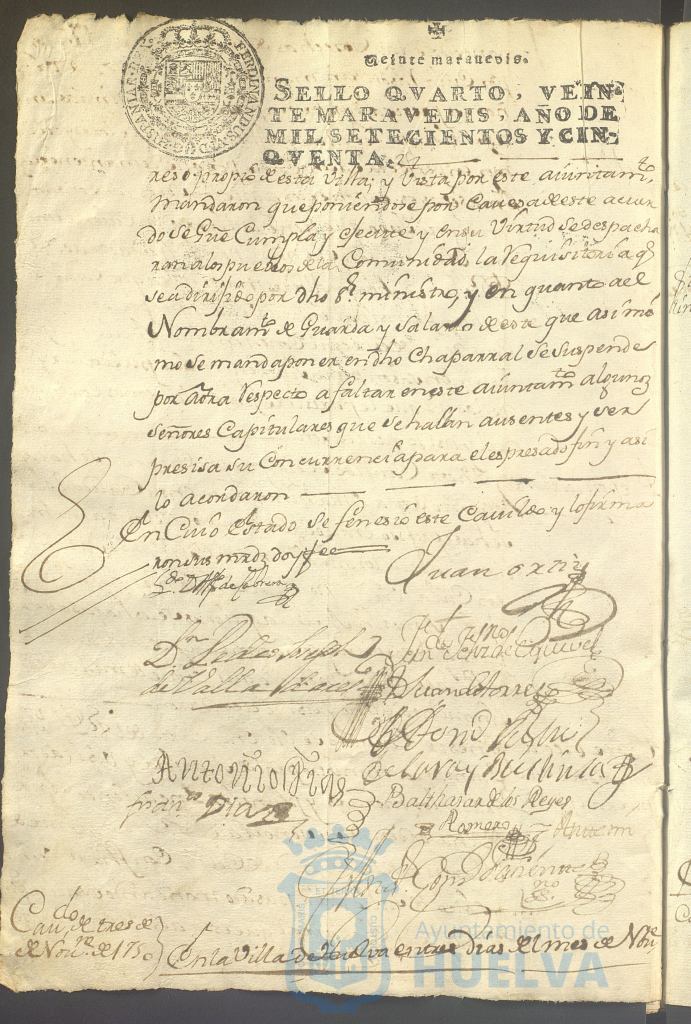 Veinte maravedis.
SELLO QVARTO, VEIN-
TE MARAVEDIS, AÑO DE
MIL SETECIENTOS Y CIN-
QVENTA.
FERDINANDUS VI D G HISPANIAR REX
reso propio de esta Villa; y Vista por este aiuntam.to
Mandaron que poniendose por Caveza de este acuer
do se Gue Cumpla y execute y en su Virtud se despacha
ran a los pueblos de la Comunidad la requisitoria q.e
se a dirijido por dho S.r ministro, y en quanto a el
Nombram.to de Guarda y Salario de este que asi mis
mo se manda poner en dho Chaparral se suspende
por aora respecto a faltar en este aiuntam.to algunos
señores Capitulares que se hallan ausentes y ser
presisa su Concurrencia para el espresado fin y asi
lo acordaron
En Cuio Estado se feneció este Cavildo y lo firma
ron sus mrds doy fee
Juan ortiz
D.n
de
Juan de torres
Antonio
Fran.co Diaz
Balthasar de los Reyes
Romero
Cav.do de tres de
de Nov.re de 1750
En la Villa de Huelva en tres dias del mes de Nov.e
Ayuntamiento de
HUELVA